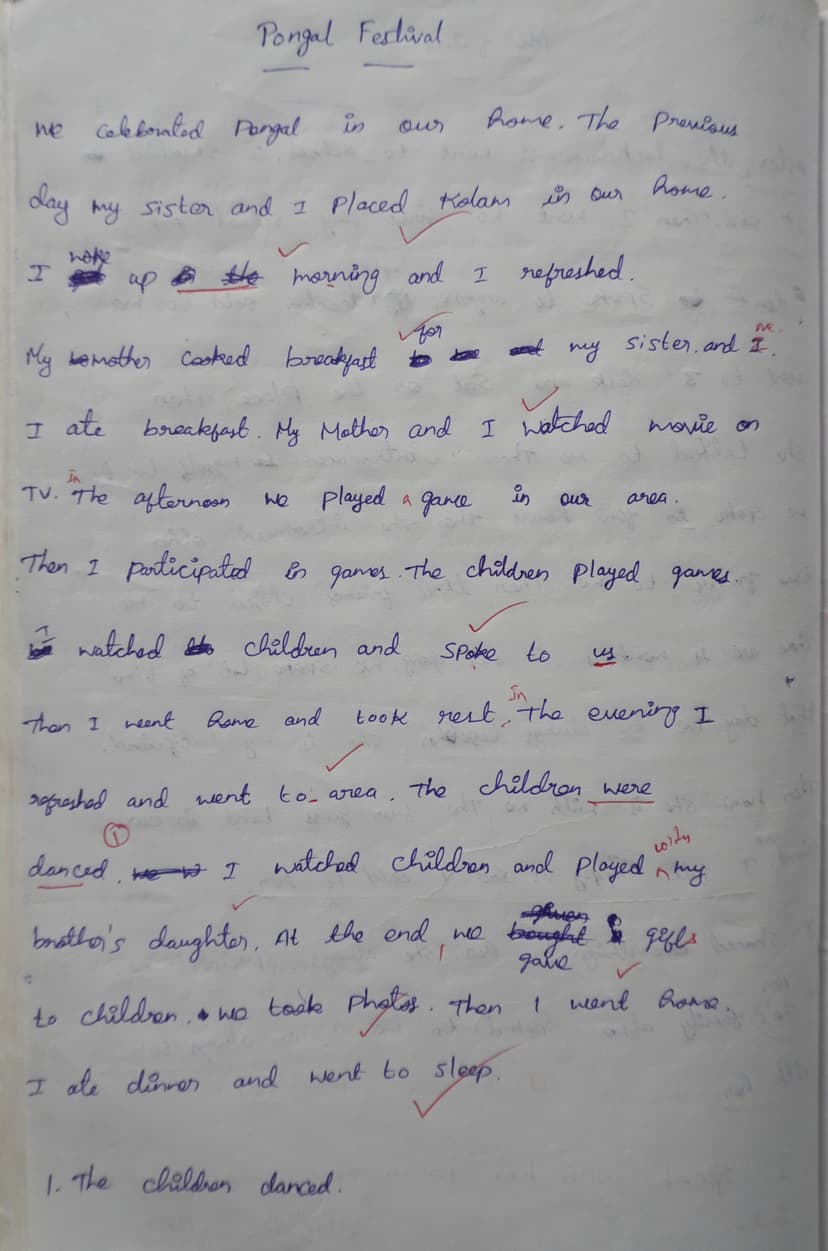 Pongal Festival
We celebrated Pongal in our home. The Previous
day my sister and I placed Kolam in our home.
I woke up morning and I refreshed.
My mother cooked breakfast for my sister, and I. me.
I ate breakfast. My Mother and I watched movie on
TV. In The afternoon we played a game in our area.
Then I participated in games. The children played games.
I watched children and spoke to us.
Then I went home and took rest. In The evening I
refreshed and went to area. The children were
danced. ① I watched children and played with my
brother's daughter. At the end, we gave gifts
to children. We took photos. Then I went home.
I ate dinner and went to sleep.
1. The children danced.